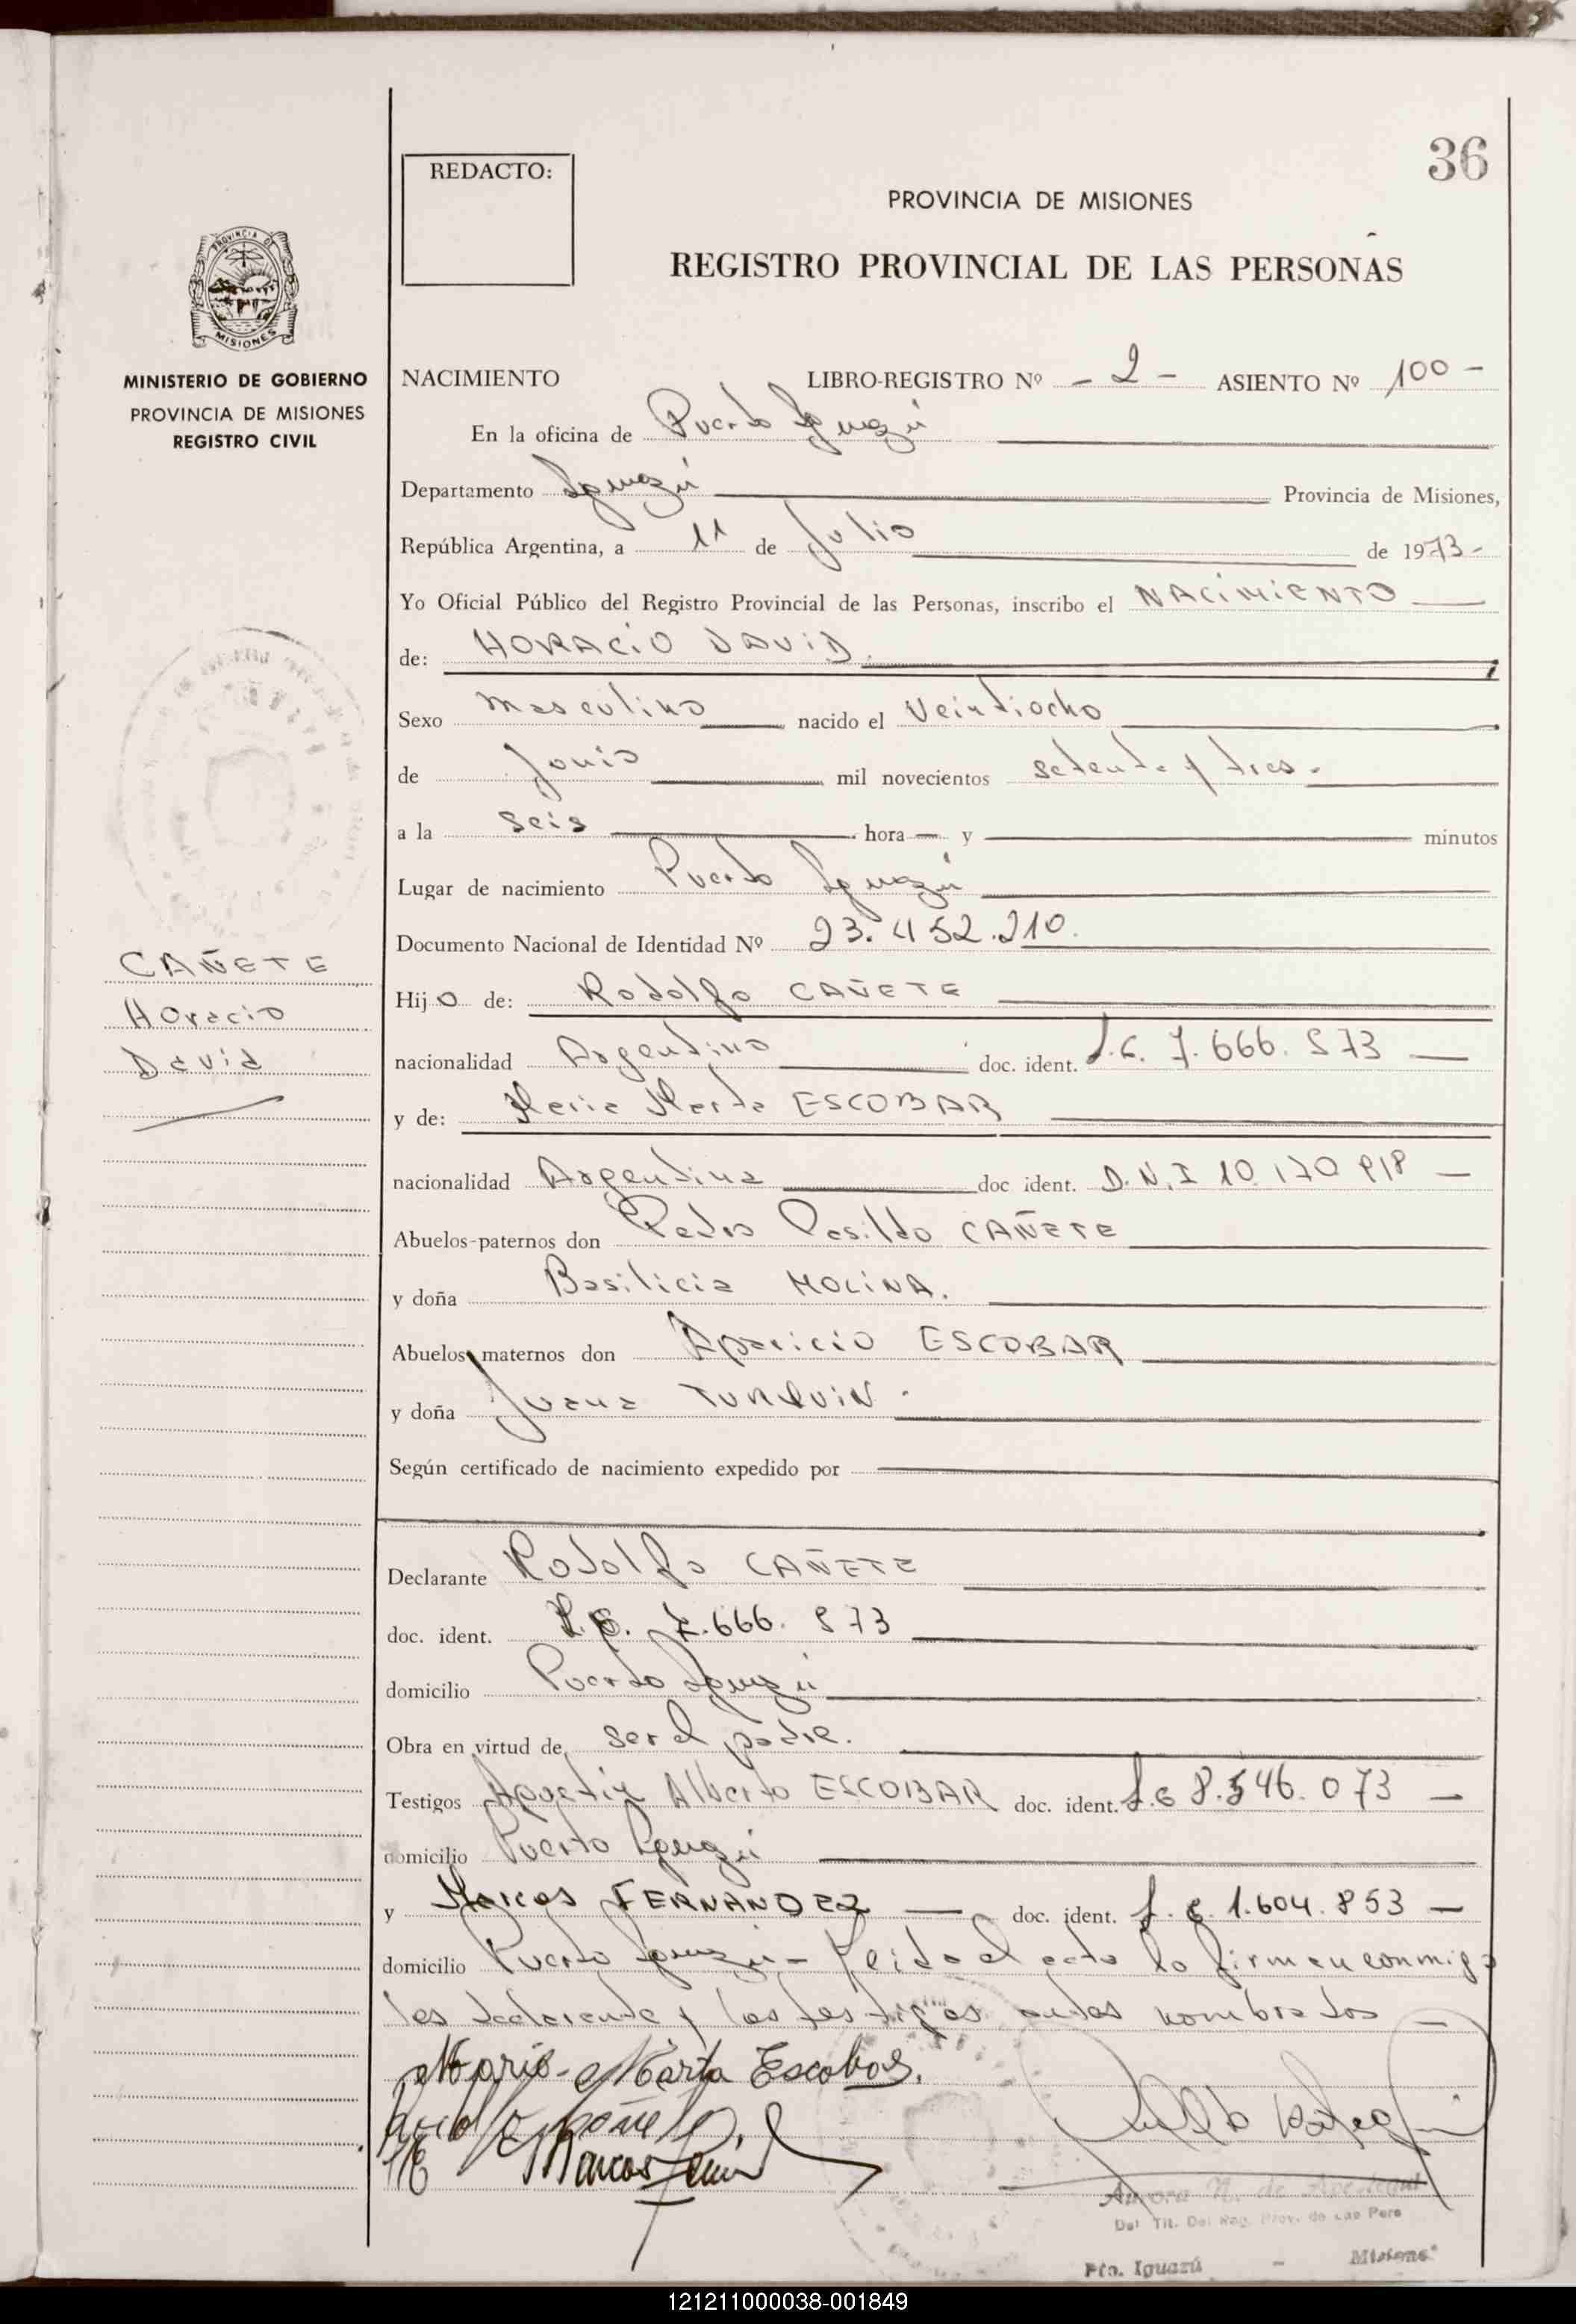 36
REDACTO:
PROVINCIA DE MISIONES
REGISTRO PROVINCIAL DE LAS PERSONAS
PROVINCIA DE
MISIONES
MINISTERIO DE GOBIERNO
PROVINCIA DE MISIONES
REGISTRO CIVIL
NACIMIENTO LIBRO-REGISTRO Nº - 2 - ASIENTO Nº 100 -
En la oficina de Puerto Iguazú
Departamento Iguazú Provincia de Misiones,
República Argentina, a 11 de Julio de 1973-
Yo Oficial Público del Registro Provincial de las Personas, inscribo el NACIMIENTO
de: HORACIO DAVID.
Sexo masculino nacido el Veintiocho
de Junio mil novecientos setenta y tres.
a la seis hora y minutos
Lugar de nacimiento Puerto Iguazú
Documento Nacional de Identidad Nº 23.452.210.
CAÑETE
Horacio
David
Hijo de: Rodolfo CAÑETE
nacionalidad Argentino doc. ident. L.E. 7.666.873
y de: Maria Marta ESCOBAR
nacionalidad Argentina doc ident. D.N.I 10.170 918
Abuelos-paternos don Pedro CAÑETE
y doña Basilicia MOLINA.
Abuelos maternos don Aparicio ESCOBAR
y doña Juana TURQUIN.
Según certificado de nacimiento expedido por
Declarante Rodolfo CAÑETE
doc. ident. L.E. 7.666.873
domicilio Puerto Iguazú
Obra en virtud de ser el padre.
Testigos Agustin Alberto ESCOBAR doc. ident. L.E 8.546.073
domicilio Puerto Iguazú
y Marcos FERNANDEZ doc. ident. L.E. 1.604.853
domicilio Puerto Iguazú - Leida el acta la firman conmigo
los declarante y los testigos antes nombrados
Maria Marta Escobar.
Marcos
Aurora N. de
Del Tit. Del Reg. Prov. de Las Pers
Pto. Iguazú - Misiones
121211000038-001849